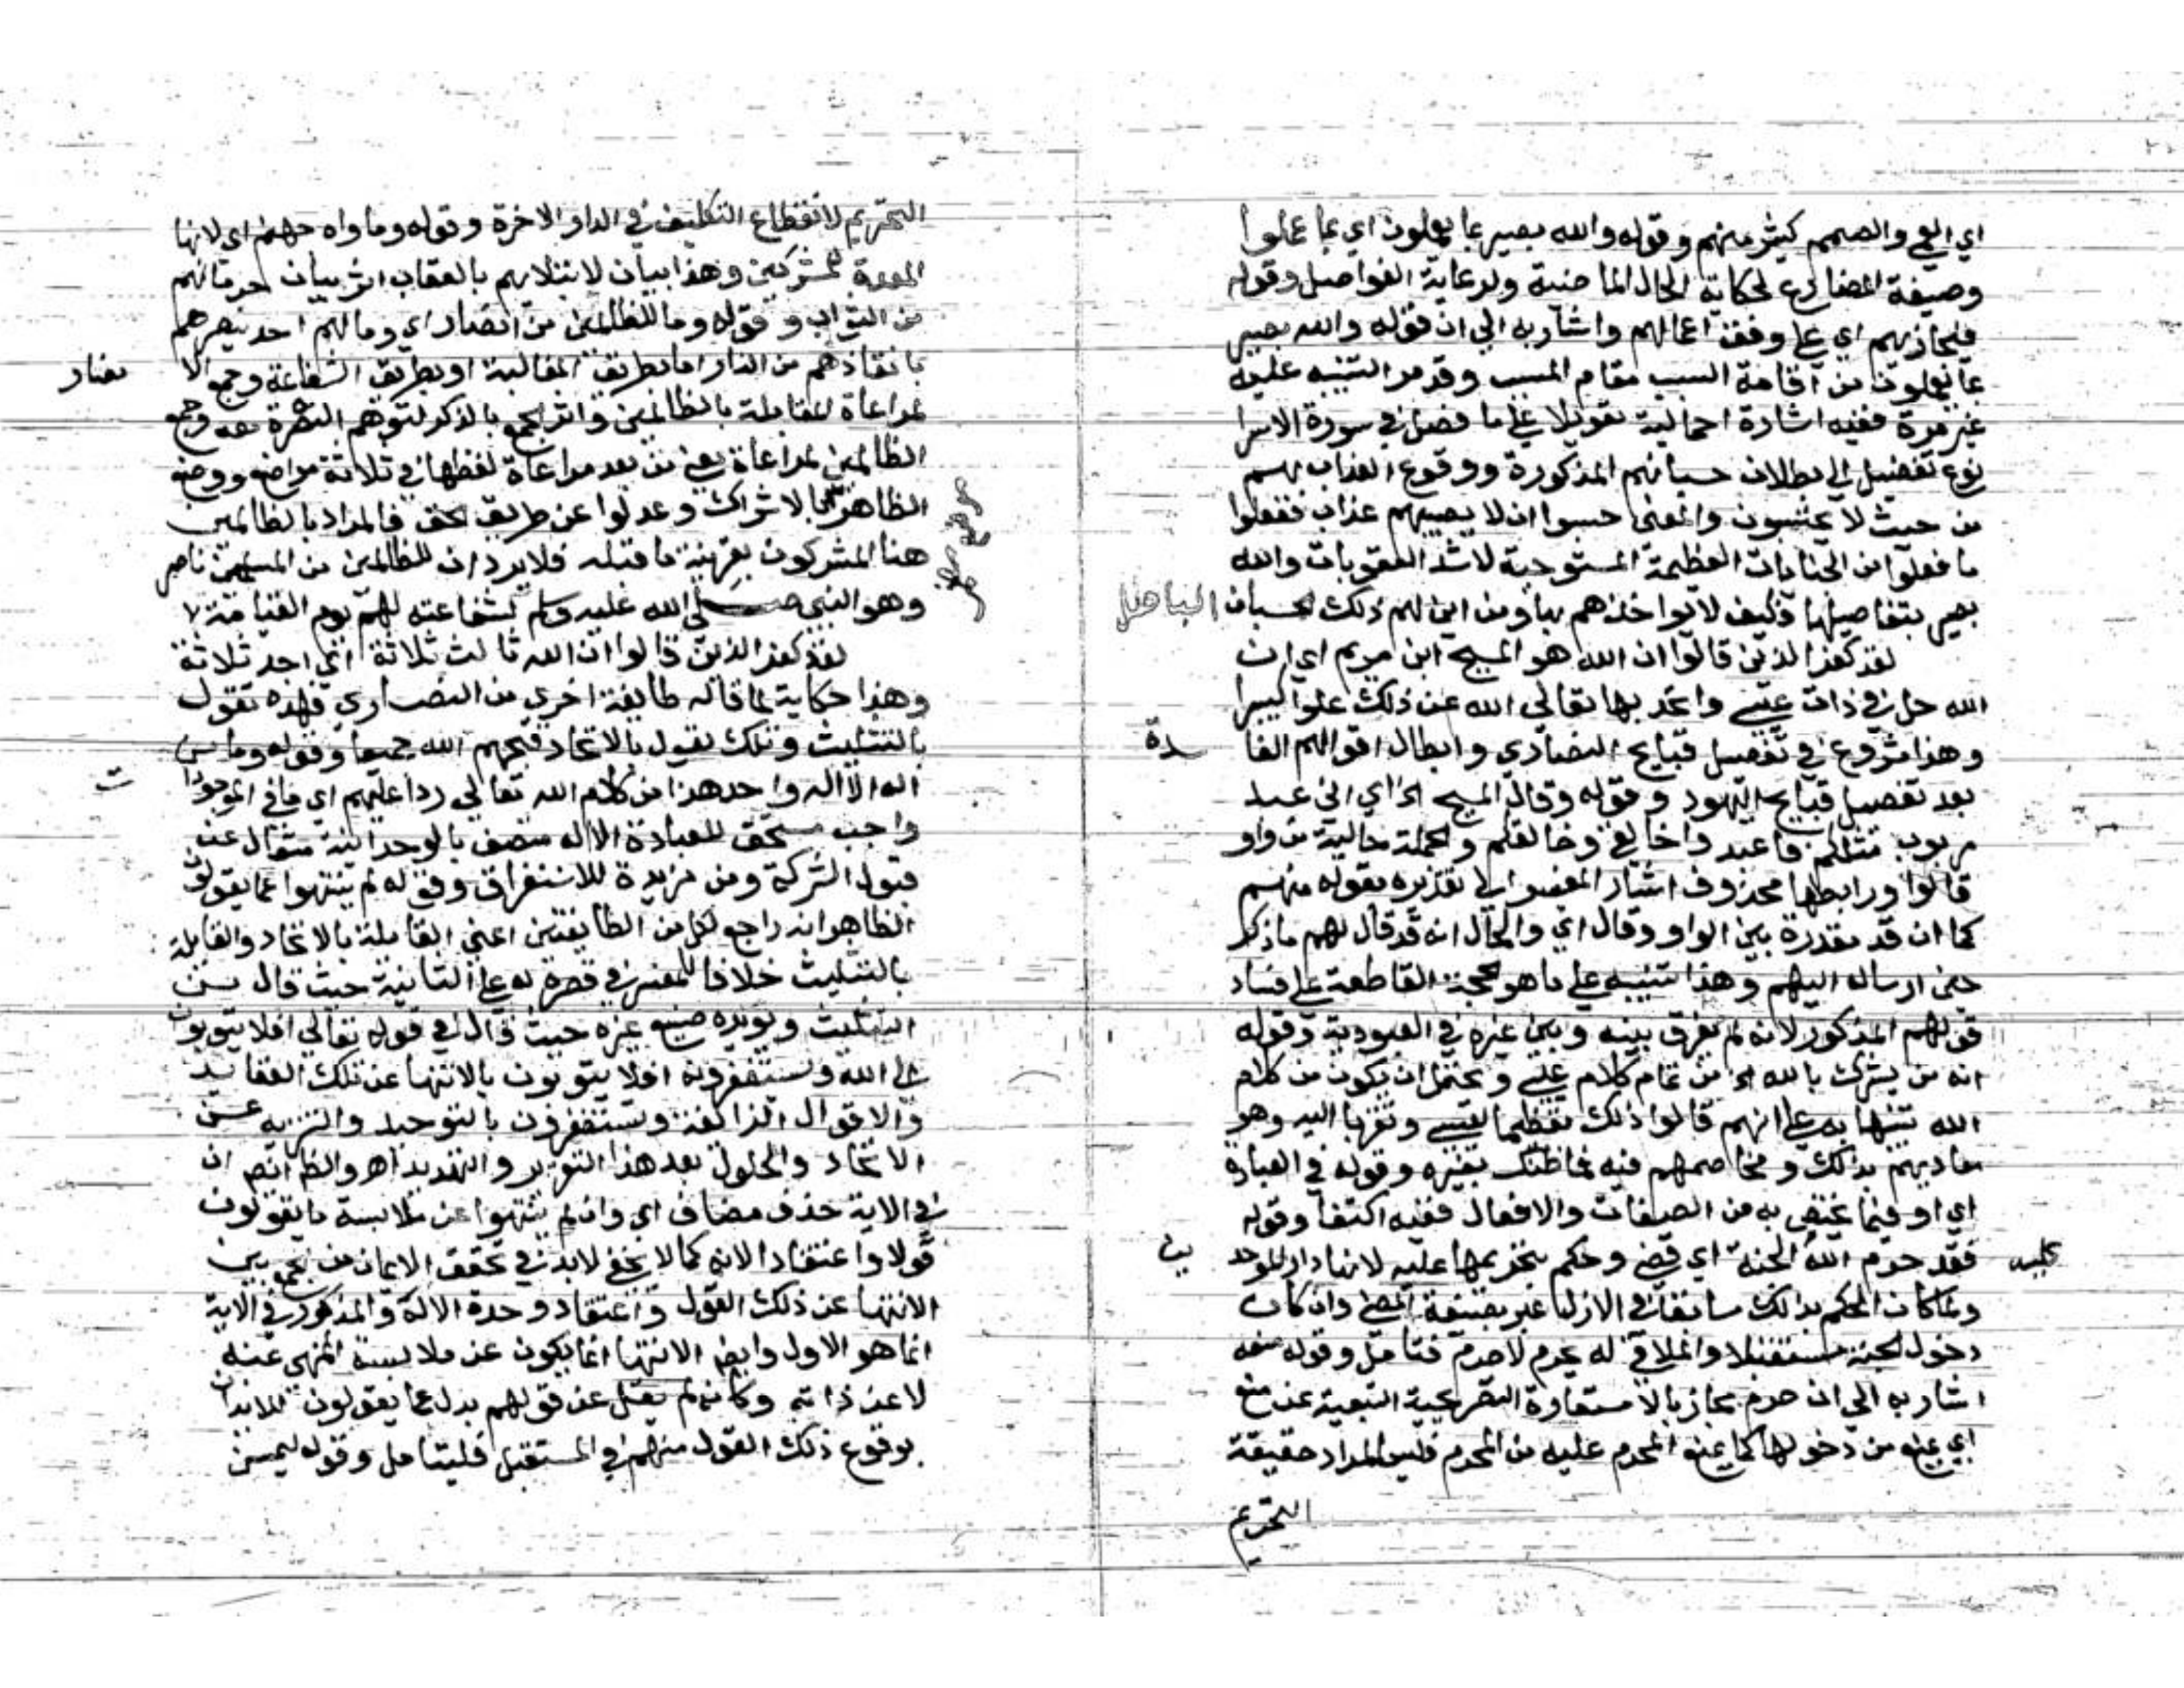 اي العمي والصمم كثير منهم وقوله والله بصير بما يعملون اي بما عملوا
وصيغة المضارع لحكاية الحال الماضية ولرعاية الفواصل وقوله
فيجازيهم اي على وفق اعمالهم واشار به الي ان قوله والله بصير
بما يعملون من اقامة السبب مقام المسبب وقد مر التنبيه عليه
غير مرة ففيه اشارة اجمالية تعويلا على ما فصل في سورة الاسرا
نوع تفصيل الي بطلان حسبانهم المذكورة ووقوع العذاب بهم
من حيث لا يحتسبون والمعنى حسبوا ان لا يصيبهم عذاب ففعلوا
ما فعلوا من الجنايات العظيمة المستوجبة لاشد العقوبات والله
بصير بتفاصيلها فكيف لا يواخذهم بها ومن اين لهم ذلك الحسبان الباطل
لقد كفر الذين قالوا ان الله هو المسيح ابن مريم اي ان
الله حل في ذات عيسى واتحد بها تعالى الله عن ذلك علوا كبيرا
وهذا شروع في تفصيل قبايح النصاري وابطال اقوالهم الفا سدة
بعد تفصيل قبايح اليهود وقوله وقال المسيح الخ اي اني عبد
مربوب مثلكم فاعبدوا خالقي وخالقكم والجملة حالية من واو
قالوا ورابطها محذوف اشار المفسر الي تقديره بقوله منهم
كما ان قد مقدرة بين الواو وقال اي والحال انه قد قال لهم ما ذكر
حين ارساله اليهم وهذا تنبيه على ما هو الحجة القاطعة على فساد
قولهم المذكور لانه لم يفرق بينه وبين غيره في العبودية وقوله
انه من يشرك بالله الخ من تمام كلام عيسى ويحتمل ان يكون من كلام
الله تنبيها به على انهم قالوا ذلك تعظيما لعيسى وتقربا اليه وهو
معاديهم بذلك ومخاصمهم فيه فما ظنك بغيره وقوله في العبادة
اي او فيما يختص به من الصفات والافعال ففيه اكتفا وقوله
فقد حرم الله عليه الجنة اي قضى وحكم بتحريمها عليه لانها دار الموحد ين
ولما كان الحكم بذلك سابقا في الازل عبر بصيغة المضي وان كان
دخول الجنة مستقبلا والملاقي له يحرم لا حرم فتامل وقوله منعه
اشار به الي ان حرم مجاز بالاستعارة التصريحية التبعية عن منع
اي يمنع من دخولها كما يمنع المحرم عليه من المحرم فليس المراد حقيقة
التحريم
التحريم لانقطاع التكليف في الدار الاخرة وقوله وماواه جهنم اي لانها
المعدة للمشركين وهذا بيان لابتلايهم بالعقاب اثر بيان حرمانهم
من الثواب وقوله وما للظالمين من انصار اي وما لهم احد ينصرهم
بانقاذهم من النار اما بطريق المغالبة او بطريق الشفاعة وجمع الا نصار
لمراعاة المقابلة بالظالمين واثر الجمع بالذكر لتوهم النصرة به وجمع
الظالمين لمراعاة معنى من بعد مراعاة لفظها في ثلاثة مواضع ووضع
الظاهر بالاشراك وعدلوا عن طريق الحق فالمراد بالظالمين
هنا المشركون بقرينة ما قبله فلا يرد ان للظالمين من المسلمين ناصر
وهو النبي صلى الله عليه وسلم لشفاعته لهم يوم القيامة
لقد كفر الذين قالوا ان الله ثالث ثلاثة اي احد ثلاثة
وهذا حكاية لما قاله طايفة اخري من النصاري فهذه تقول
بالتثليث وتلك تقول بالاتحاد قبحهم الله جميعا وقوله وما من
اله الا اله واحد هذا من كلام الله تعالي ردا عليهم اي ما في الموجودا ت
واجب مستحق للعبادة الا اله متصف بالوحدانية متعال عن
قبول الشركة ومن مزيدة للاستغراق وقوله لم ينتهوا عما يقولون
الظاهر انه راجع لكل من الطايفتين اعني القايلة بالاتحاد والقايلة
بالتثليث خلافا للمفسر في قصره له على الثانية حيث قال من
التثليث ويويده صنيع غيره حيث قال في قوله تعالي افلا يتوبون
الي الله ويستغفرونه افلا يتوبون بالانتها عن تلك العقايد
والاقوال الزايغة ويستغفرون بالتوحيد والتنزيه عن
الاتحاد والحلول بعد هذا التقرير والتهديد اهـ والظاهر ان
في الاية حذف مضاف اي وان لم ينتهوا عن ملابسة ما يقولون
قولا واعتقادا لانه كما لا يخفى لابد في تحقق الايمان من الجمع بين
الانتها عن ذلك القول واعتقاد وحدة الاله والمذكور في الاية
انما هو الاول وايضا الانتها انما يكون عن ملابسة المنهى عنه
لا عن ذاته وكانه لم يقل عن قولهم بدل عما يقولون للايذان
بوقوع ذلك القول منهم في المستقبل فليتامل وقوله ليمسن